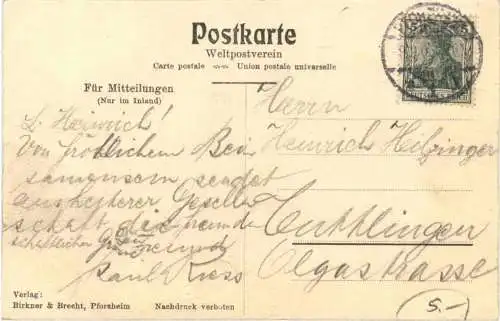 Postkarte
Weltpostverein
Carte postale Union postale universelle
Für Mitteilungen
(Nur im Inland)
L. Heinrich!
Von fröhlichem Bei
samensein sendet
aus heiterer Gesell
schaft die freund
schaftlichen Grüsse
Dein Freund
Paul Kress
Herrn
Heinrich Hilzinger
Tuttlingen
Olgastrasse
5.-
Verlag:
Birkner & Brecht, Pforzheim Nachdruck verboten